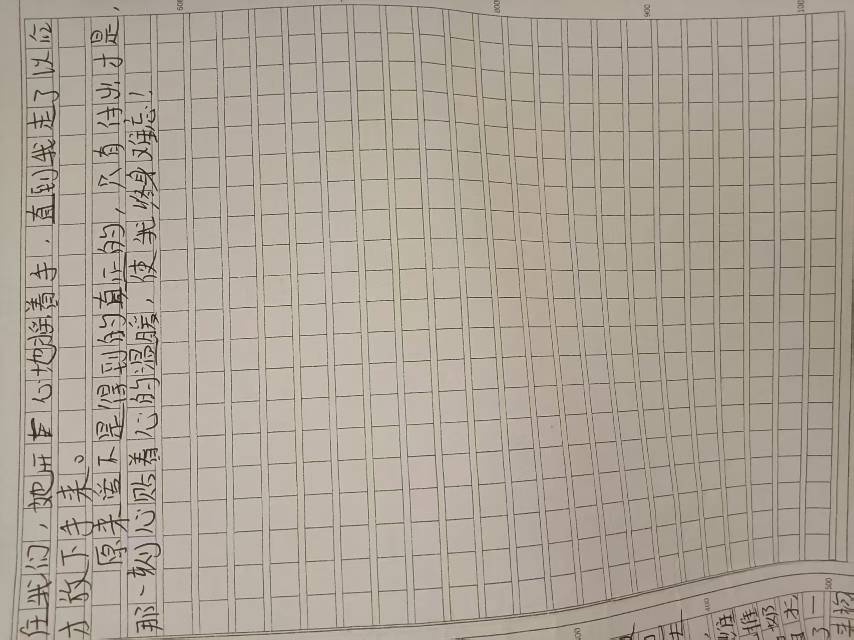 住我们，她开心地摇着手，直到我走了以后
才放下手来。
原来爱不是得到的真正的，只有付出才是，
那一刻心贴着心的温暖，使我终身难忘！
600
800
900